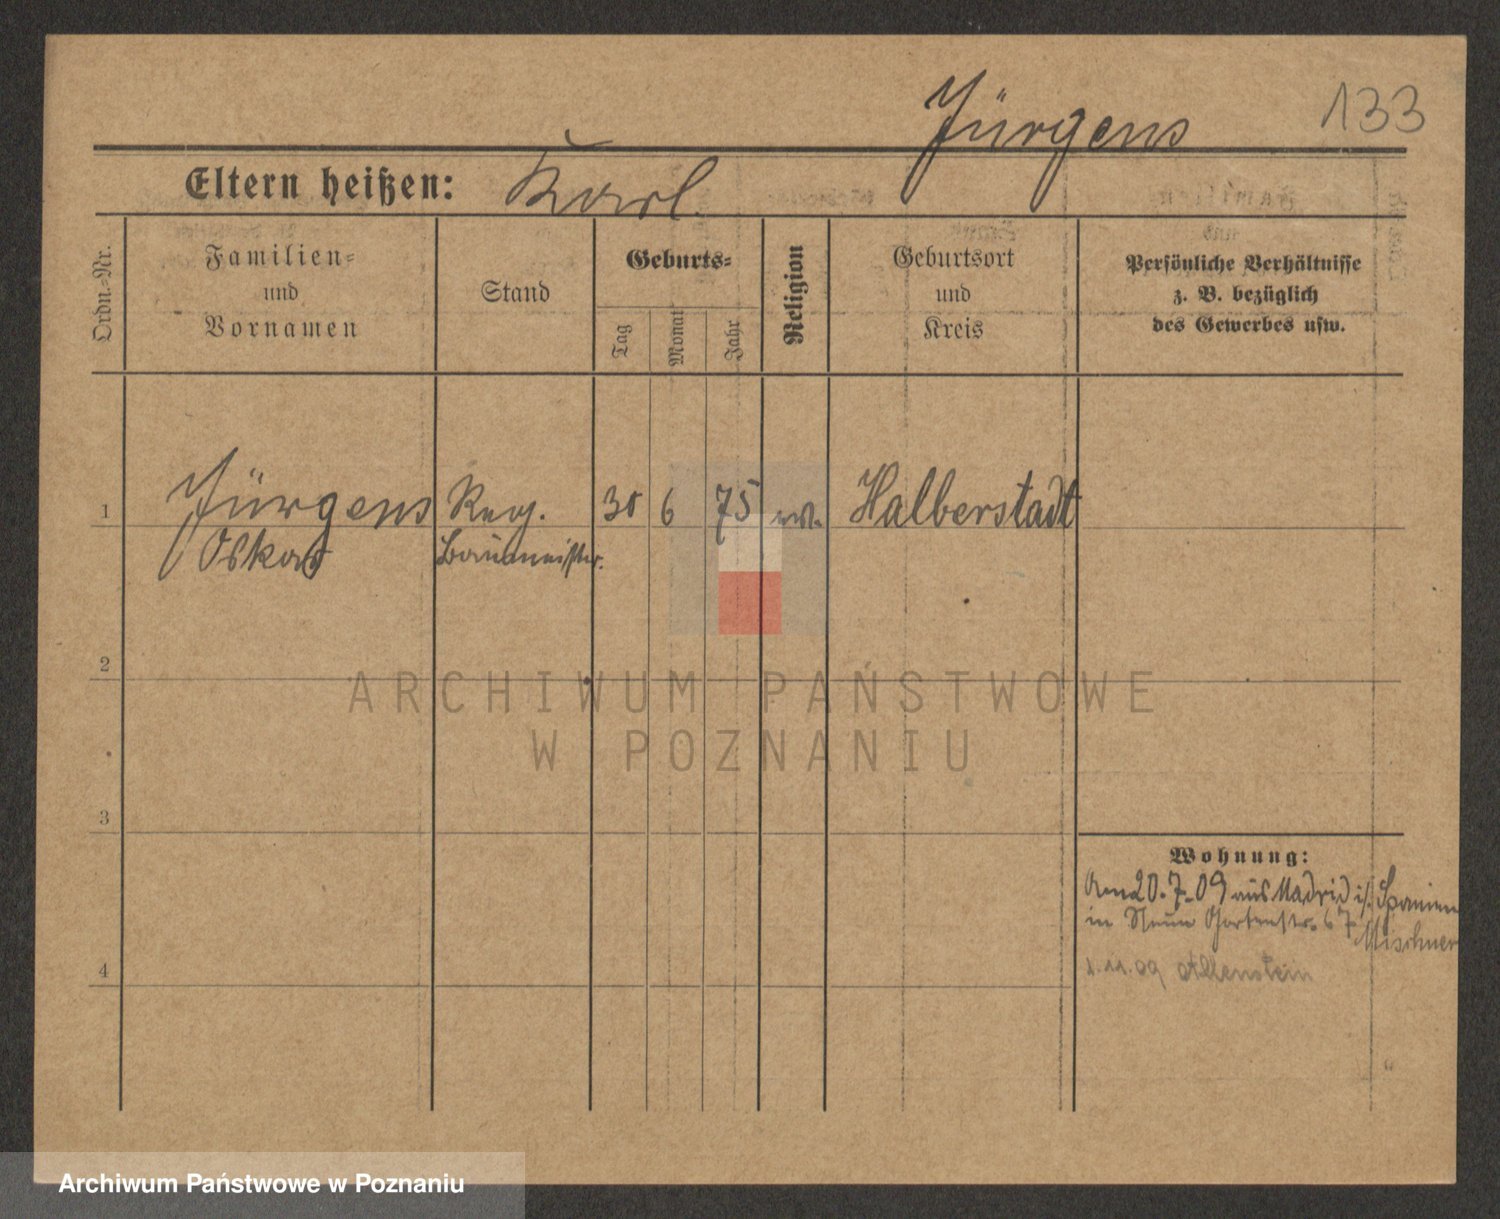 Jürgens 133
Eltern heißen: Karl
Ordn.-Nr.
Familien-
und
Vornamen
Stand
Geburts-
Tag
Monat
Jahr
Religion
Geburtsort
und
Kreis
Persönliche Verhältnisse
z. B. bezüglich
des Gewerbes usw.
1 Jürgens Reg. 30 6 75 ev. Halberstadt
Oskar Baumeister.
2
ARCHIWUM PAŃSTWOWE
W POZNANIU
3
Wohnung:
Am 20.7.09 aus Madrid i/ Spanien
in Gartenstr. 67
Mischner
4
1.11.09 Allenstein
Archiwum Państwowe w Poznaniu